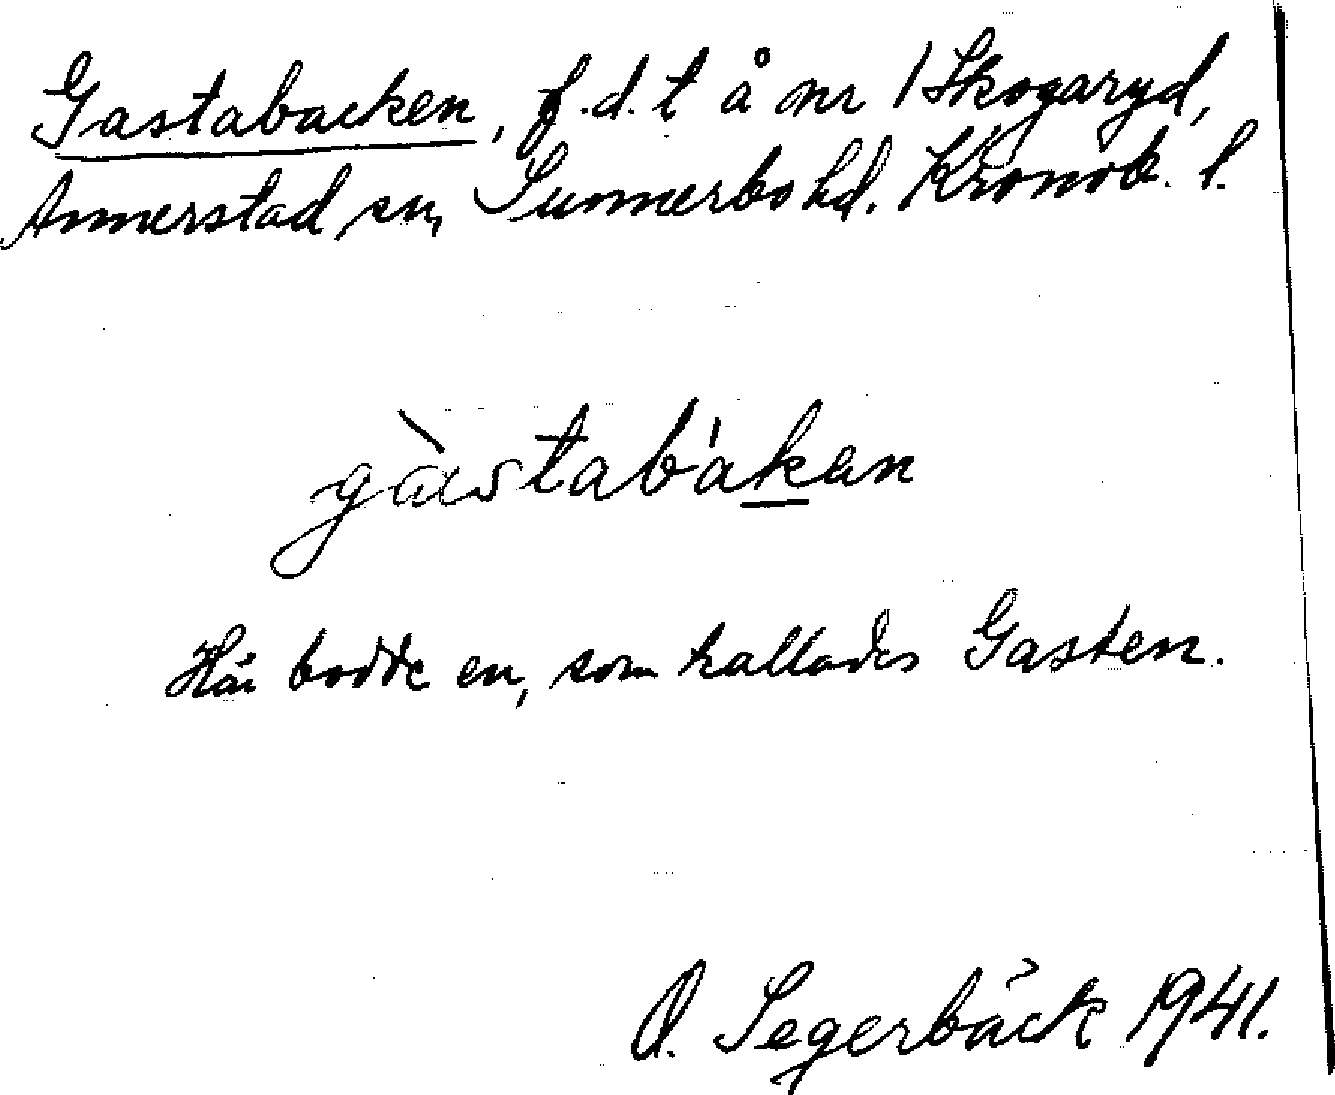 Gastabacken, f.d.t å nr 1 Skogaryd,
Annerstad sn, Sunnerbo hd. Kronob. l.
gàstabákan
Här bodde en, som kallades Gasten.
O. Segerbäck 1941.